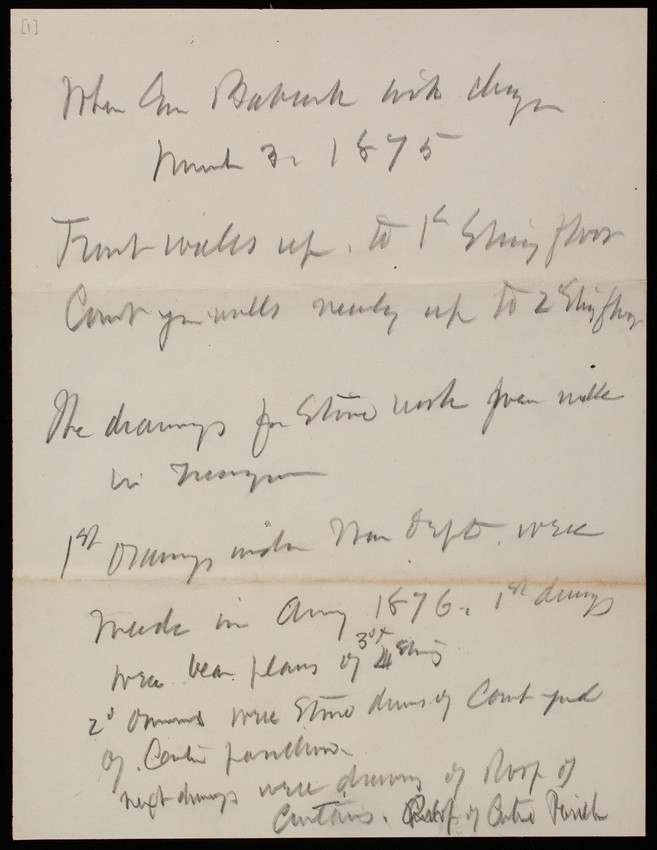 [1]
When Gen Babcock took charge
March 3. 1875
Front walls up. to 1st Story floor
Court yd walls nearly up to 2 Story floor
The drawings for Stone work from
in
1st Drawings under War Dept. were
made in Aug 1876. 1st drawings
were beam plans of 3rd Story
2d Drawings were Stone drawgs of Court yard
of. Center pavilion
next drawings were drawings of Roof of
Curtains. Roof of Centre Pavilion